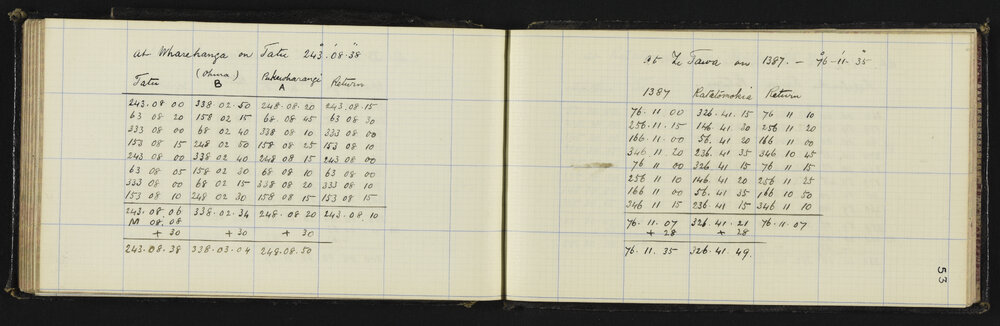 at Wharehanga on Tatu 243°.08'.38"
Tatu (Ohura) B Pukuoharangi A Return
243.08 00 338 02.50 248.08.20 243.08.15
63 08 20 158 02 15 68 08 45 63 08 30
333 08 00 68 02 40 338 08 10 333 08 00
153 08 15 248 02 50 158 08 25 153 08 10
243 08 00 338 02 40 248 08 15 243 08 00
63 08 05 158 02 30 68 08 10 63 08 00
333 08 00 68 02 15 338 08 20 333 08 10
153 08 10 248 02 30 158 08 15 153 08 15
243.08.06 338.02.34 248.08 20 243.08.10
M 08.08
+ 30 + 30 + 30
243.08.38 338.03.04 248.08.50
at Te Tawa on 1387. - 76°-11'.35"
1387 Ratatomokia Return
76.11 00 326.41.15 76 11 10
256.11.15 146 41 30 256 11 20
166.11 00 56.41 20 166 11 00
346.11.20 236.41 35 346 10 45
76 11 00 326 41 15 76 11 15
256 11 10 146.41 20 256 11 25
166 11 00 56.41 35 166 10 50
346 11 15 236 41 15 346 11 10
76.11.07 326.41.21 76.11.07
+ 28 + 28
76.11.35 326.41.49.
53